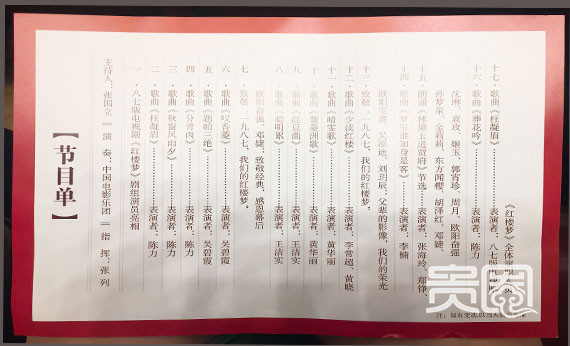 【节目单】
主持人:张国立 ‖ 演 奏:中国电影乐团 ‖ 指 挥:张 列
一·八七版电视剧《红楼梦》剧组演员亮相
二·歌曲《枉凝眉》…………表演者:陈力
三·歌曲《秋窗风雨夕》…………表演者:陈力
四·歌曲《分骨肉》…………表演者:陈力
五·歌曲《题帕三绝》…………表演者:吴碧霞
六·歌曲《叹香菱》…………表演者:吴碧霞
七·致敬,一九八七,我们的红楼梦。
欧阳奋强、邓婕,致敬经典,感恩幕后
八·歌曲《聪明累》…………表演者:王洁实
九·歌曲《红豆曲》…………表演者:王洁实
十·歌曲《紫菱洲歌》…………表演者:黄华丽
十一·歌曲《晴雯歌》…………表演者:黄华丽
十二·歌曲《少读红楼》…………表演者:李常超、黄晓
十三·致敬,一九八七,我们的红楼梦。
吴泓迪、刘玥辰,父辈的影像,我们的荣光
十四·歌曲 谁知身是客》…………表演者:李楠
十五·朗诵《林黛玉进贾府》节选…………表演者:张海玲、郑铮、
孙梦泉、金莉莉、东方闻樱、胡泽红、邓婕、
沈琳、袁玫、姬玉、郭宵珍、周月、欧阳奋强
十六·歌曲《葬花吟》…………表演者:陈力
十七·歌曲《枉凝眉》…………表演者:八七版
《红楼梦》全体
注:如有变动以当天
贵圈